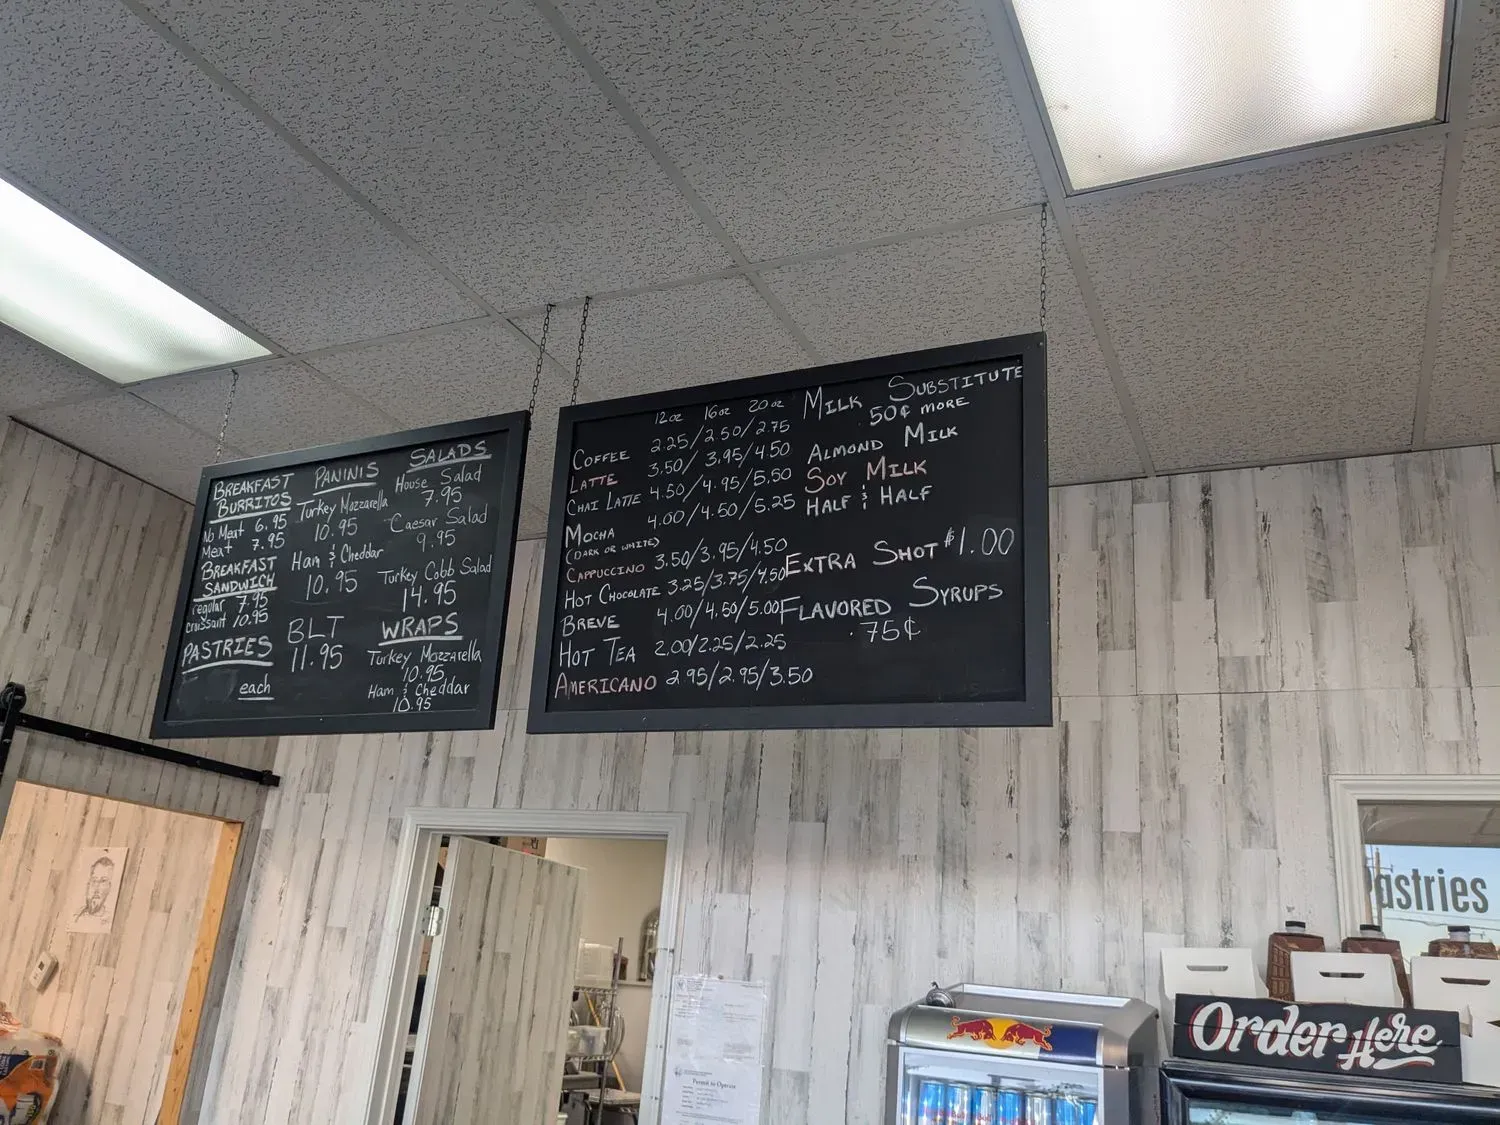 BREAKFAST
BURRITOS
No Meat 6.95
Meat 7.95
BREAKFAST
SANDWICH
regular 7.95
croissant 10.95
PASTRIES
each
PANINIS
Turkey Mozzarella
10.95
Ham & Cheddar
10.95
BLT
11.95
SALADS
House Salad
7.95
Caesar Salad
9.95
Turkey Cobb Salad
14.95
WRAPS
Turkey Mozzarella
10.95
Ham & Cheddar
10.95
12oz 16oz 20oz
COFFEE 2.25/2.50/2.75
LATTE 3.50/3.95/4.50
CHAI LATTE 4.50/4.95/5.50
MOCHA 4.00/4.50/5.25
(DARK OR WHITE)
CAPPUCCINO 3.50/3.95/4.50
HOT CHOCOLATE 3.25/3.75/4.50
BREVE 4.00/4.50/5.00
HOT TEA 2.00/2.25/2.25
AMERICANO 2.95/2.95/3.50
MILK SUBSTITUTE
50¢ MORE
ALMOND MILK
SOY MILK
HALF & HALF
EXTRA SHOT $1.00
FLAVORED SYRUPS
.75¢
Pastries
Order Here
Permit to Operate